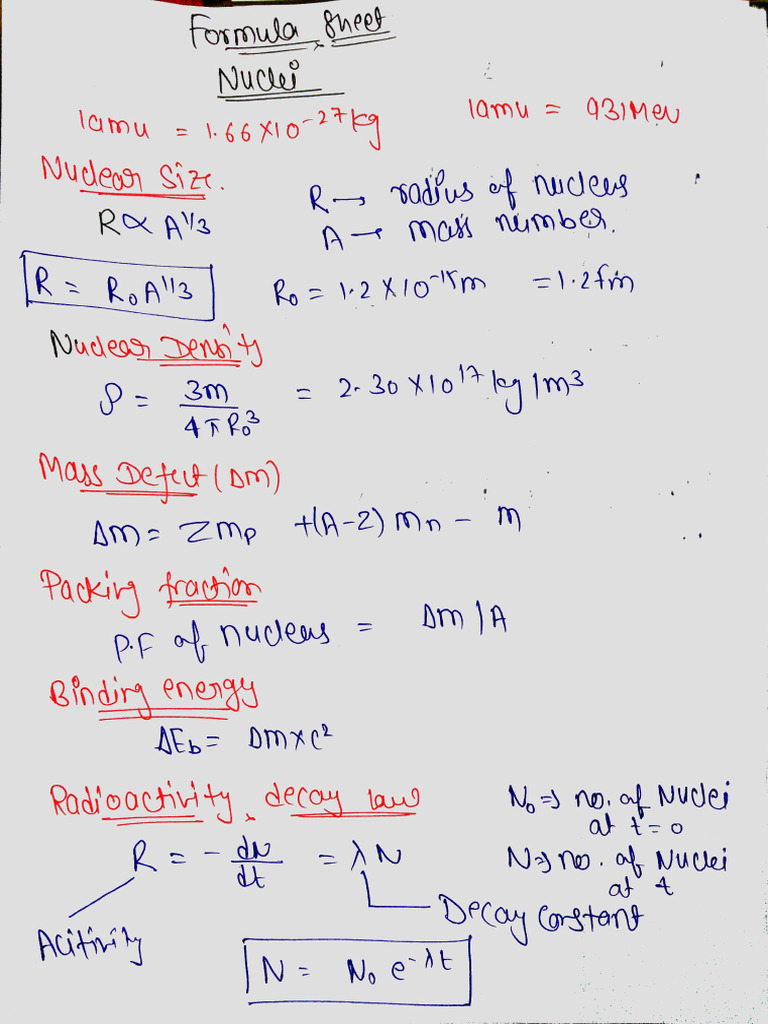 Formula Sheet
Nuclei
1amu = 1.66×10⁻²⁷kg
1amu = 931Mev
Nuclear Size.
R → radius of nucleus
R ∝ A^1/3
A → mass number.
R = R₀A^1/3
R₀ = 1.2×10⁻¹⁵m = 1.2fm
Nuclear Density
ρ = 3m / 4πR₀³ = 2.30×10¹⁷ kg/m³
Mass Defect (Δm)
Δm = Zmp + (A-Z) mn - m
Packing fraction
P.F of nucleus = Δm/A
Binding energy
ΔEb = Δm×c²
Radioactivity, decay law
N₀ ⇒ no. of Nuclei
at t=0
R = - dN/dt = λN
N ⇒ no. of Nuclei
at t
Decay Constant
Acitivity
N = N₀ e^-λt